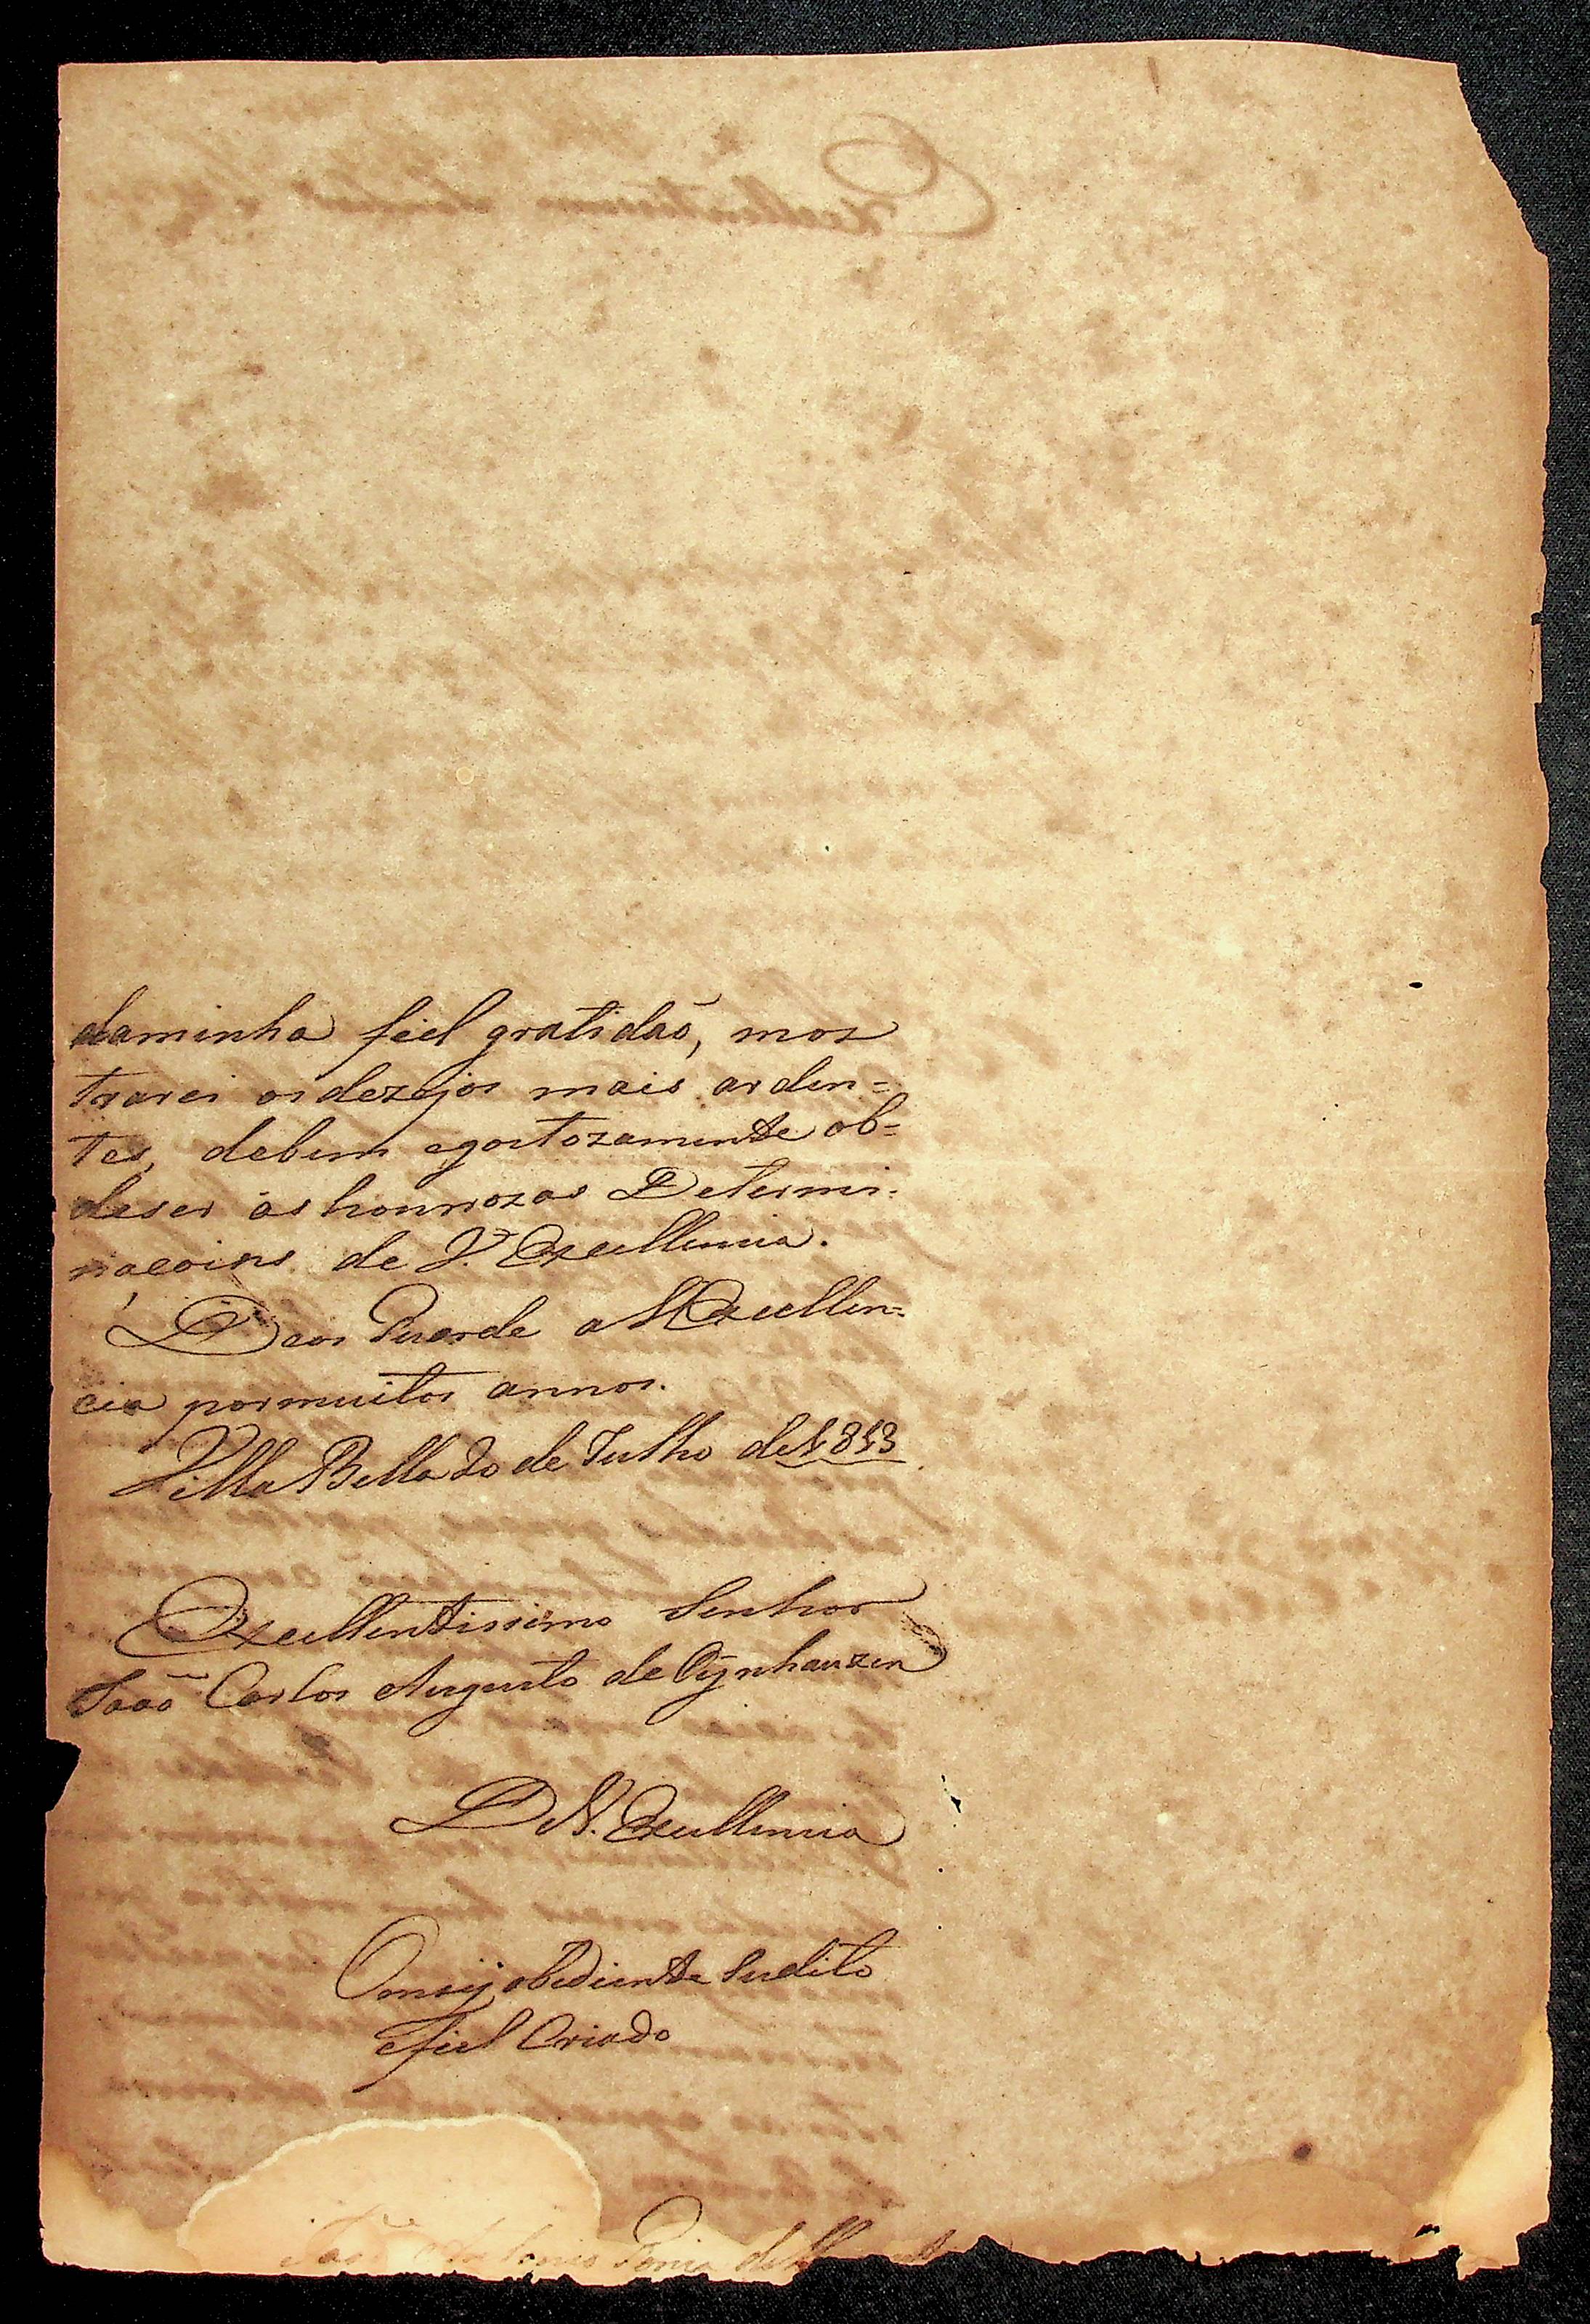 daminha fiel gratidaõ, mos
trarei osdezejos mais arden=
tes, debem egostozamente ob=
deser ás honrrozas Determi=
nacoins de V.ª Excellencia.
Deos Guarde a V Excellen=
cia pormuitos annos.
Villa Bella 20 de Julho de 1813
Excellentissimo Senhor
Joaõ Carlos Augusto de Oÿnhauzen
D V. Excellencia
Omaij obediente Sudito
efiel Criado
Joaõ Antonio